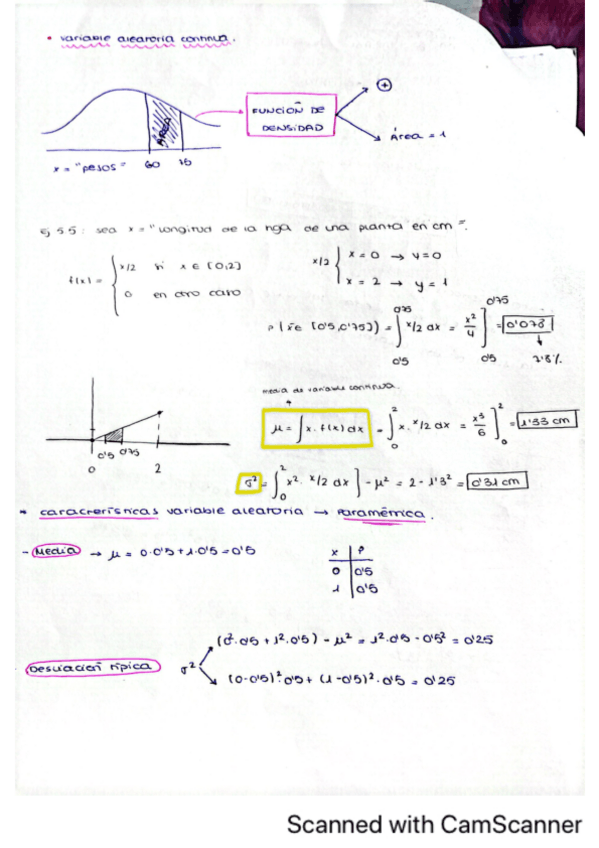 • variable aleatoria continua.
ÁREA
x = "pesos" 60 75
FUNCIÓN DE
DENSIDAD
+
Área = 1
Ej 5.5: sea x = "longitud de la hoja de una planta" en cm".
f(x) = { x/2 si x ∈ [0,2]
0 en otro caso
x/2 { x = 0 → y = 0
x = 2 → y = 1
P(x ∈ [0'5,0'75]) = ∫ 0'5 0'75 x/2 dx = x²/4 ] 0'5 0'75 = 0'078
7'8%
0'5 0'75
0 2
media de variable continua.
μ = ∫ x · f(x) dx = ∫ 0 2 x · x/2 dx = x³/6 ] 0 2 = 1'33 cm
σ² = ∫ 0 2 x² · x/2 dx ] - μ² = 2 - 1'3² = 0'31 cm
* características variable aleatoria → Paramétrica.
- Media → μ = 0·0'5 + 1·0'5 = 0'5
x P
0 0'5
1 0'5
Desviación típica σ²
(0²·0'5 + 1²·0'5) - μ² = 1²·0'5 - 0'5² = 0'25
(0-0'5)²·0'5 + (1-0'5)²·0'5 = 0'25
Scanned with CamScanner